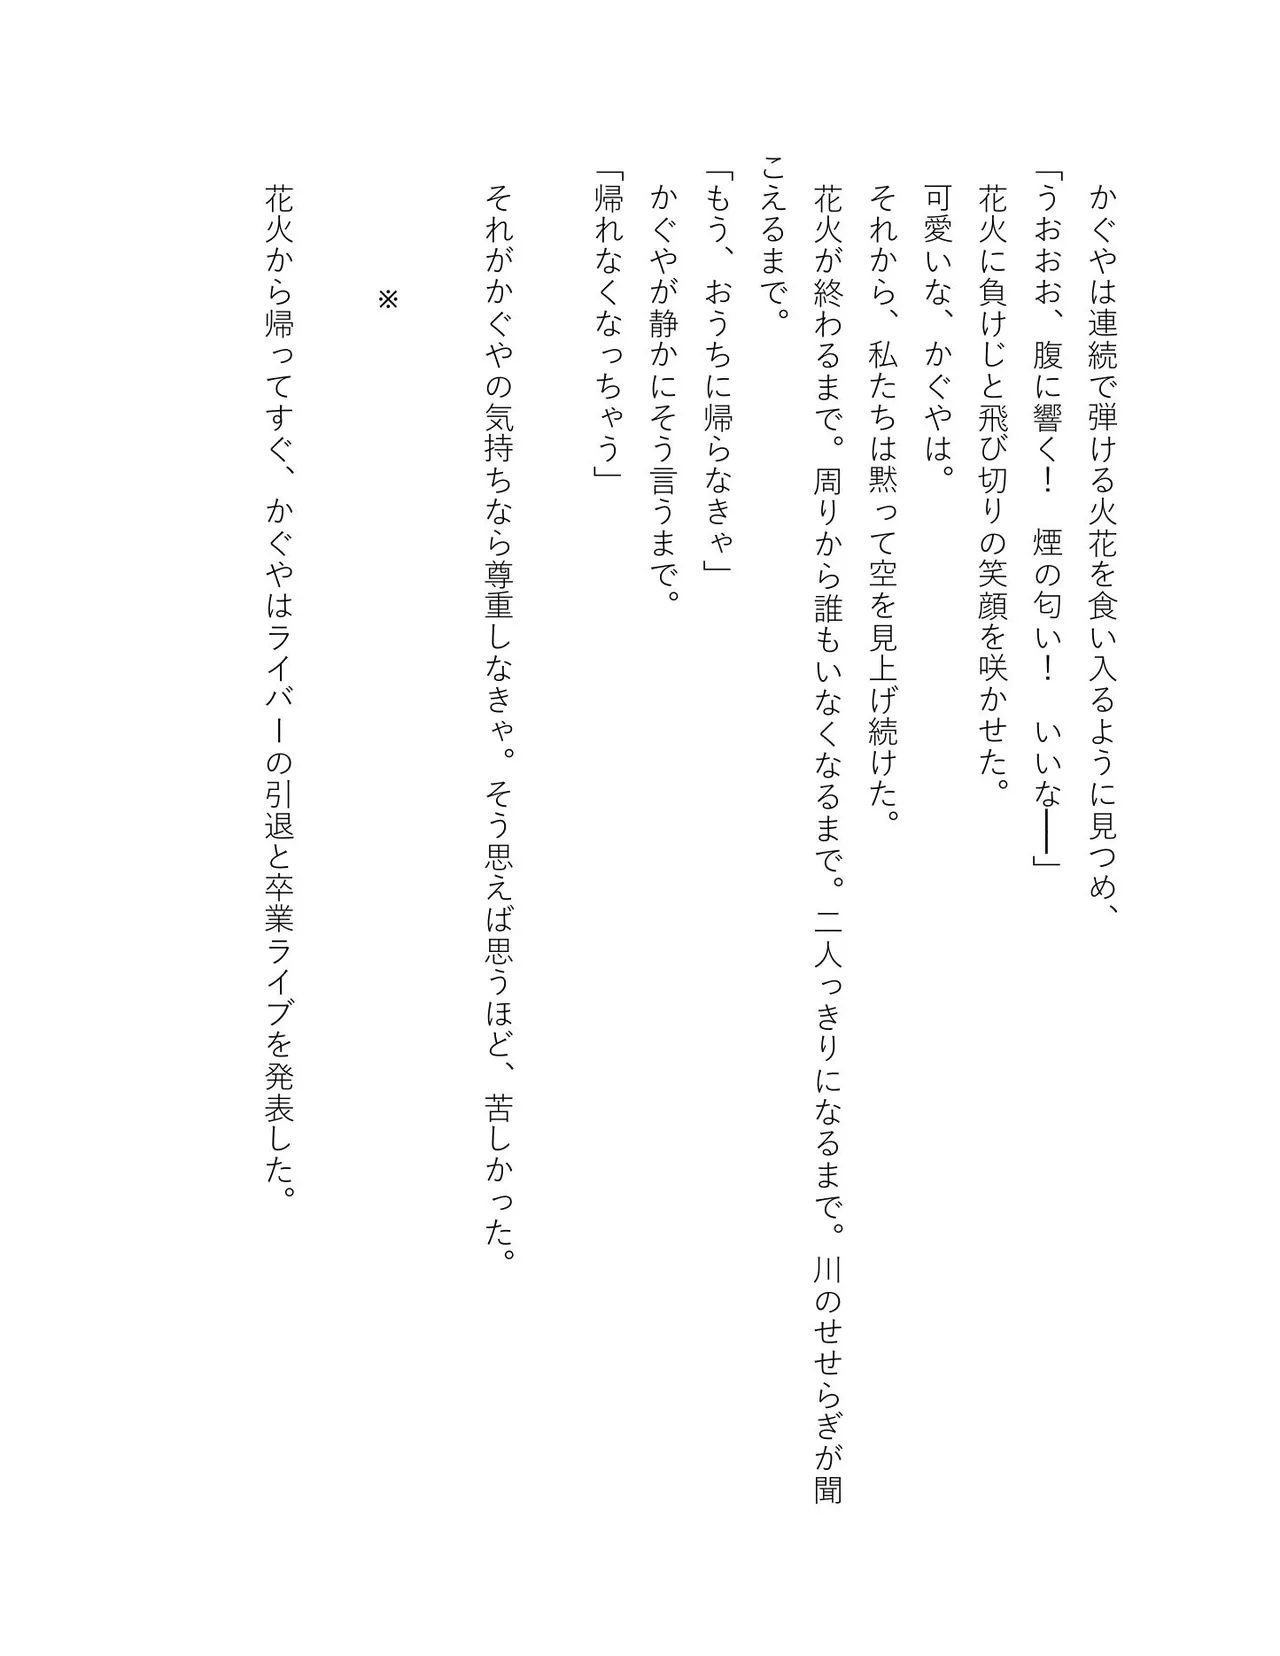 かぐやは連続で弾ける火花を食い入るように見つめ、
「うおおお、腹に響く！　煙の匂い！　いいな――」
花火に負けじと飛び切りの笑顔を咲かせた。
可愛いな、かぐやは。
それから、私たちは黙って空を見上げ続けた。
花火が終わるまで。周りから誰もいなくなるまで。二人っきりになるまで。川のせせらぎが聞
こえるまで。
「もう、おうちに帰らなきゃ」
かぐやが静かにそう言うまで。
「帰れなくなっちゃう」
それがかぐやの気持ちなら尊重しなきゃ。そう思えば思うほど、苦しかった。
※
花火から帰ってすぐ、かぐやはライバーの引退と卒業ライブを発表した。